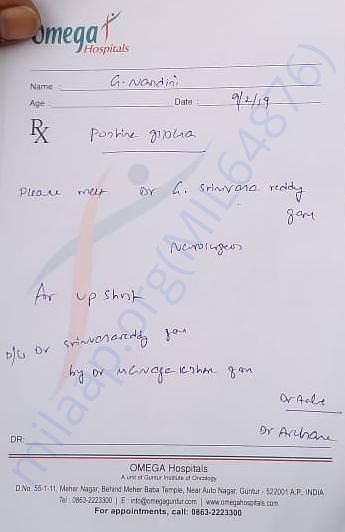 Omega
Hospitals
Name : G. Nandini
Age : Date : 9/2/19
Rx Pontine glioma
Please meet Dr G. Srinivasa reddy
garu
Neurosurgeon
For VP Shunt
D/W Dr Srinivasareddy garu
by Dr garu
Dr
Dr Archana
DR:
OMEGA Hospitals
A unit of Guntur Institute of Oncology
D.No. 55-1-11, Meher Nagar, Behind Meher Baba Temple, Near Auto Nagar, Guntur - 522001 A.P., INDIA
Tel : 0863-2223300 | E : info@omegaguntur.com | www.omegahospitals.com
For appointments, call: 0863-2223300
milaap.org(MIL64876)